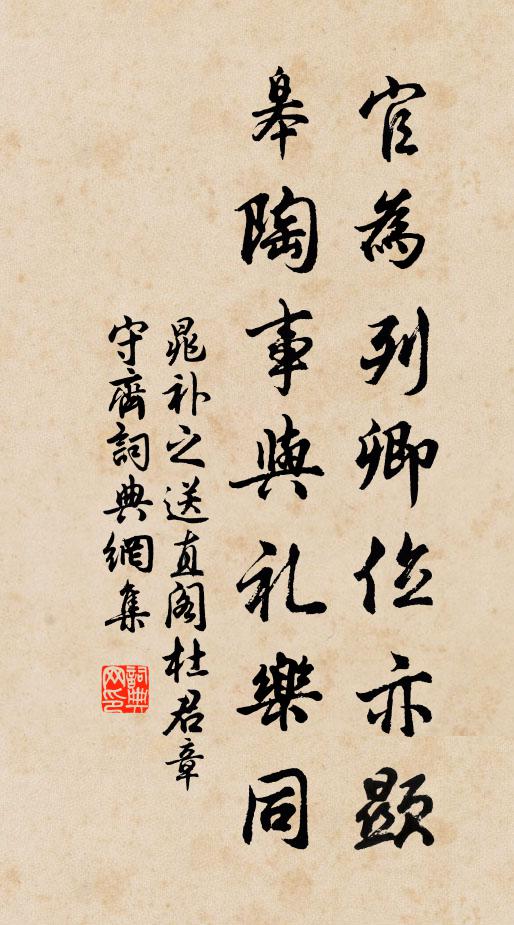 官為列卿位亦顯
皋陶事與礼樂同
晁补之送直阁杜君章
守齋詞典網集
詞典
网印